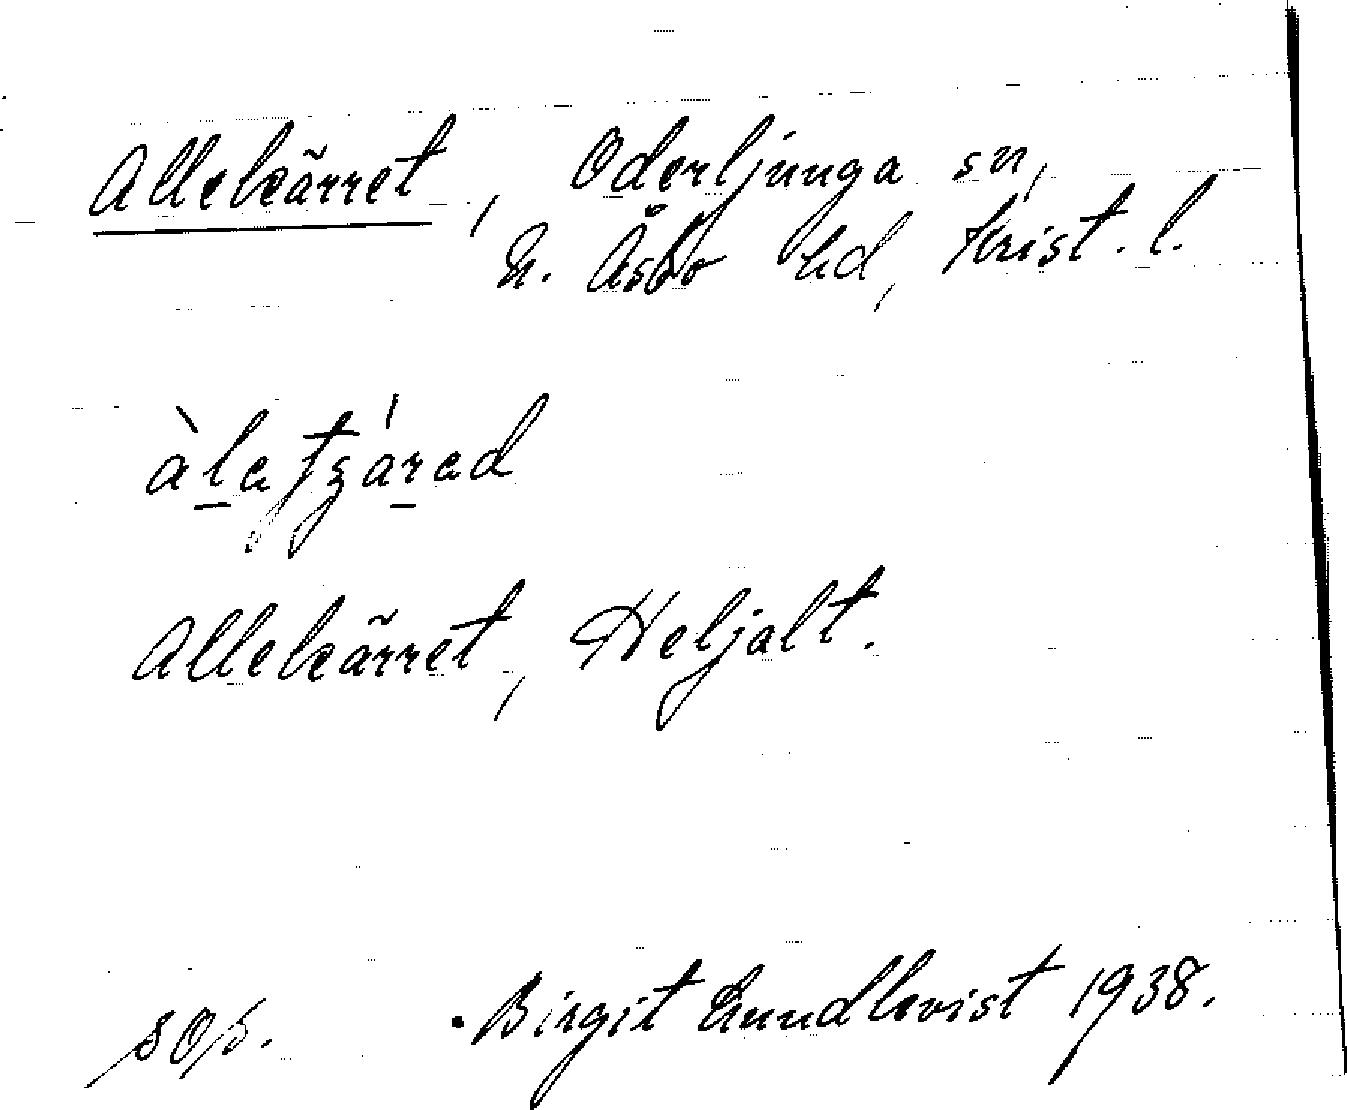 Allekärret, Oderljunga sn,
N. Åsbo hd, Krist. l.
Allekärret, Heljalt.
Birgit Lundkvist 1938.